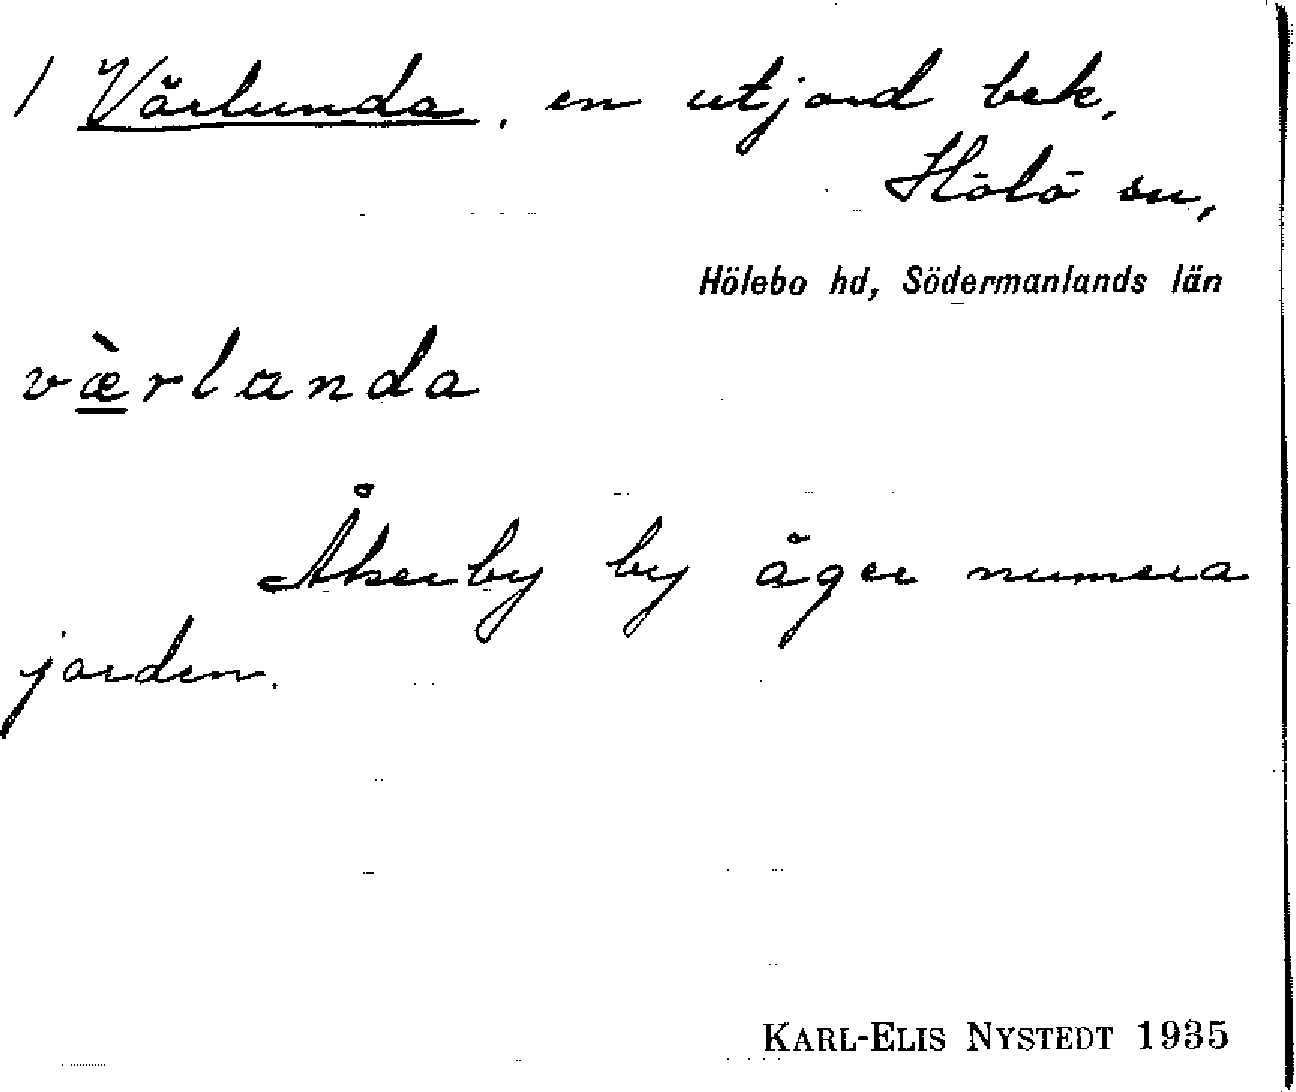 / Värlunda, en utjord bek,
Hölö sn,
Hölebo hd, Södermanlands län
væ̀rlanda
Åkerby by äger numera
jorden.
KARL-ELIS NYSTEDT 1935